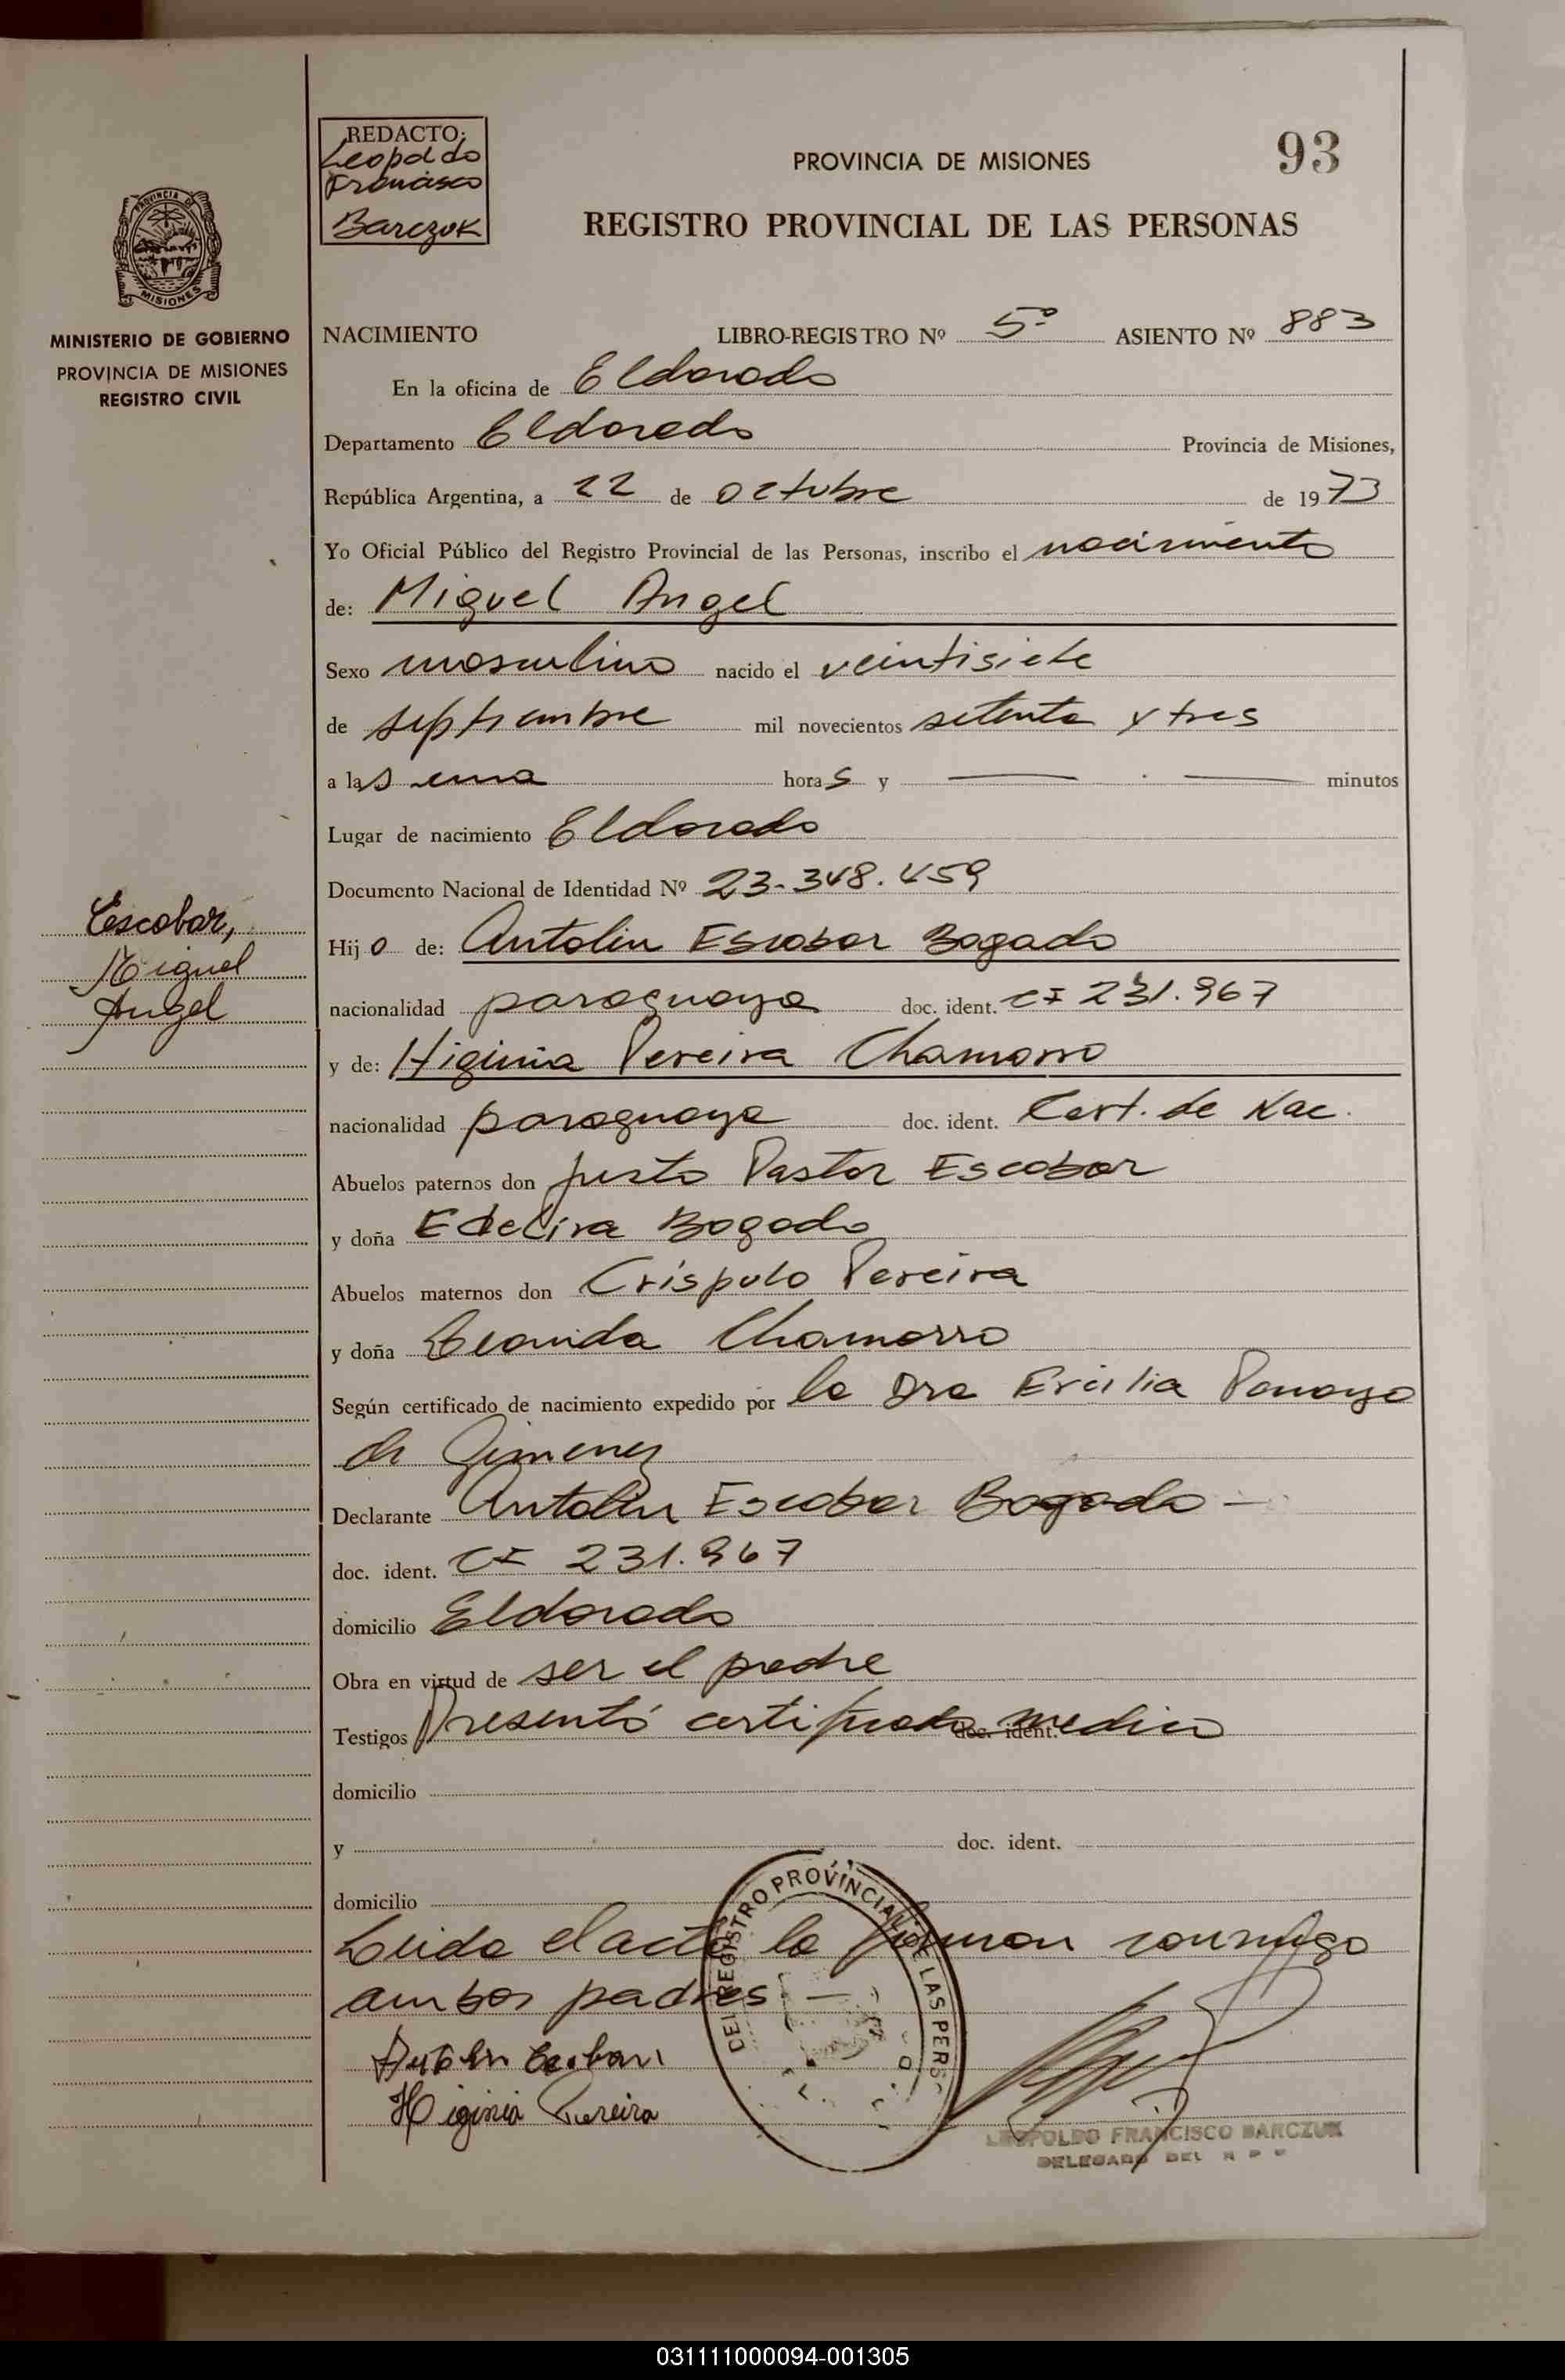 REDACTO:
Leopoldo
Francisco
Barczuk
PROVINCIA DE MISIONES
93
REGISTRO PROVINCIAL DE LAS PERSONAS
PROVINCIA DE
MISIONES
MINISTERIO DE GOBIERNO
PROVINCIA DE MISIONES
REGISTRO CIVIL
NACIMIENTO LIBRO-REGISTRO Nº 5º ASIENTO Nº 883
En la oficina de Eldorado
Departamento Eldorado Provincia de Misiones,
República Argentina, a 22 de octubre de 1973
Yo Oficial Público del Registro Provincial de las Personas, inscribo el nacimiento
de: Miguel Angel
Sexo masculino nacido el veintisiete
de septiembre mil novecientos setenta y tres
a las una horas y minutos
Lugar de nacimiento Eldorado
Documento Nacional de Identidad Nº 23.348.459
Escobar,
Miguel
Angel
Hijo de: Antolin Escobar Bogado
nacionalidad paraguaya doc. ident. CI 231.967
y de: Higinia Pereira Chamorro
nacionalidad paraguaya doc. ident. Cert. de Nac.
Abuelos paternos don Justo Pastor Escobar
y doña Edelira Bogado
Abuelos maternos don Crispulo Pereira
y doña Leonida Chamorro
Según certificado de nacimiento expedido por la Dra Ercilia
de Gimenez
Declarante Antolin Escobar Bogado -
doc. ident. CI 231.967
domicilio Eldorado
Obra en virtud de ser el padre
Testigos Presentó certificado doc. ident. medico
domicilio
y doc. ident.
domicilio
Leida el acta la firman conmigo
ambos padres. —
Antolin Escobar
Higinia Pereira
REGISTRO PROVINCIAL DE LAS PERS
LEOPOLDO FRANCISCO BARCZUK
DELEGADO DEL R P P
031111000094-001305